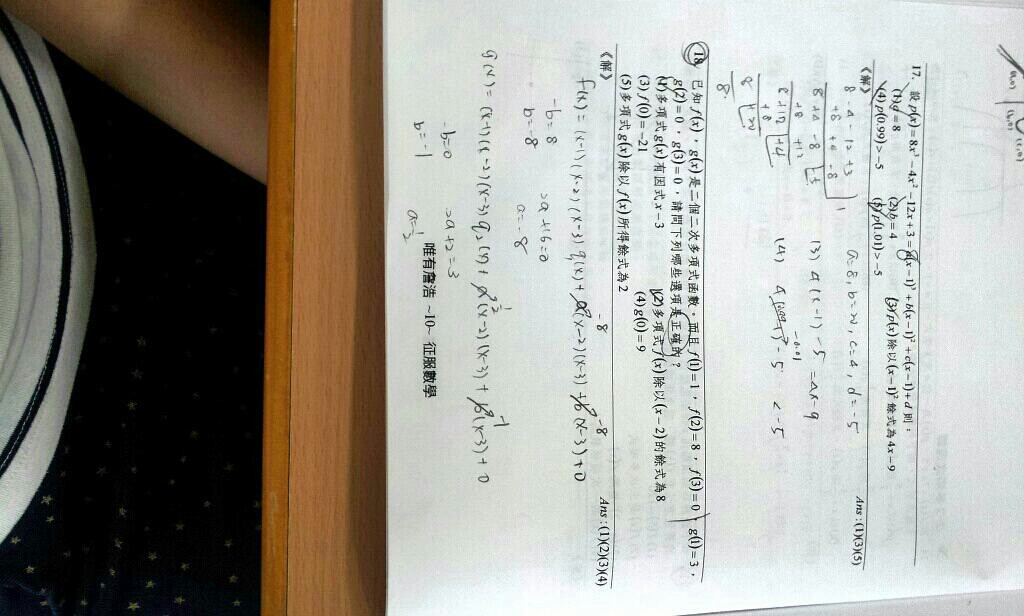 17. 設 p(x) = 8x³ - 4x² - 12x + 3 = a(x - 1)³ + b(x - 1)² + c(x - 1) + d 則:
(1) d = 8 (2) b = 4 (3) p(x) 除以 (x - 1)² 餘式為 4x - 9
(4) p(0.99) > -5 (5) p(1.01) > -5
Ans : (1)(3)(5)
《解》
8 - 4 - 12 + 3 | 1
+8 +4 -8
8 +4 -8 | -5
+8 +12
8 +12 | +4
+8
8 | +20
8
a=8, b=20, c=4, d=-5
(3) 4(x-1) - 5 = 4x-9
(4) 4 - 5 < -5
-0.01
18. 已知 f(x),g(x) 是二個二次多項式函數,而且 f(1) = 1,f(2) = 8,f(3) = 0,g(1) = 3,
g(2) = 0,g(3) = 0,請問下列哪些選項是正確的?
(1) 多項式 g(x) 有因式 x - 3 (2) 多項式 f(x) 除以 (x - 2) 的餘式為 8
(3) f(0) = -21 (4) g(0) = 9
(5) 多項式 g(x) 除以 f(x) 所得餘式為 2
Ans : (1)(2)(3)(4)
《解》
-8 -8
f(x) = (x-1)(x-2)(x-3) q(x) + a(x-2)(x-3) + b(x-3) + 0
-b=8 2a+16=0
b=-8 a=-8
g(x) = (x-1)(x-2)(x-3) q₂(x) + (x-2)(x-3) + b(x-3) + 0
-b=0 2a+2=3
b=-1 a=½
唯有詹浩 ~10~ 征服數學